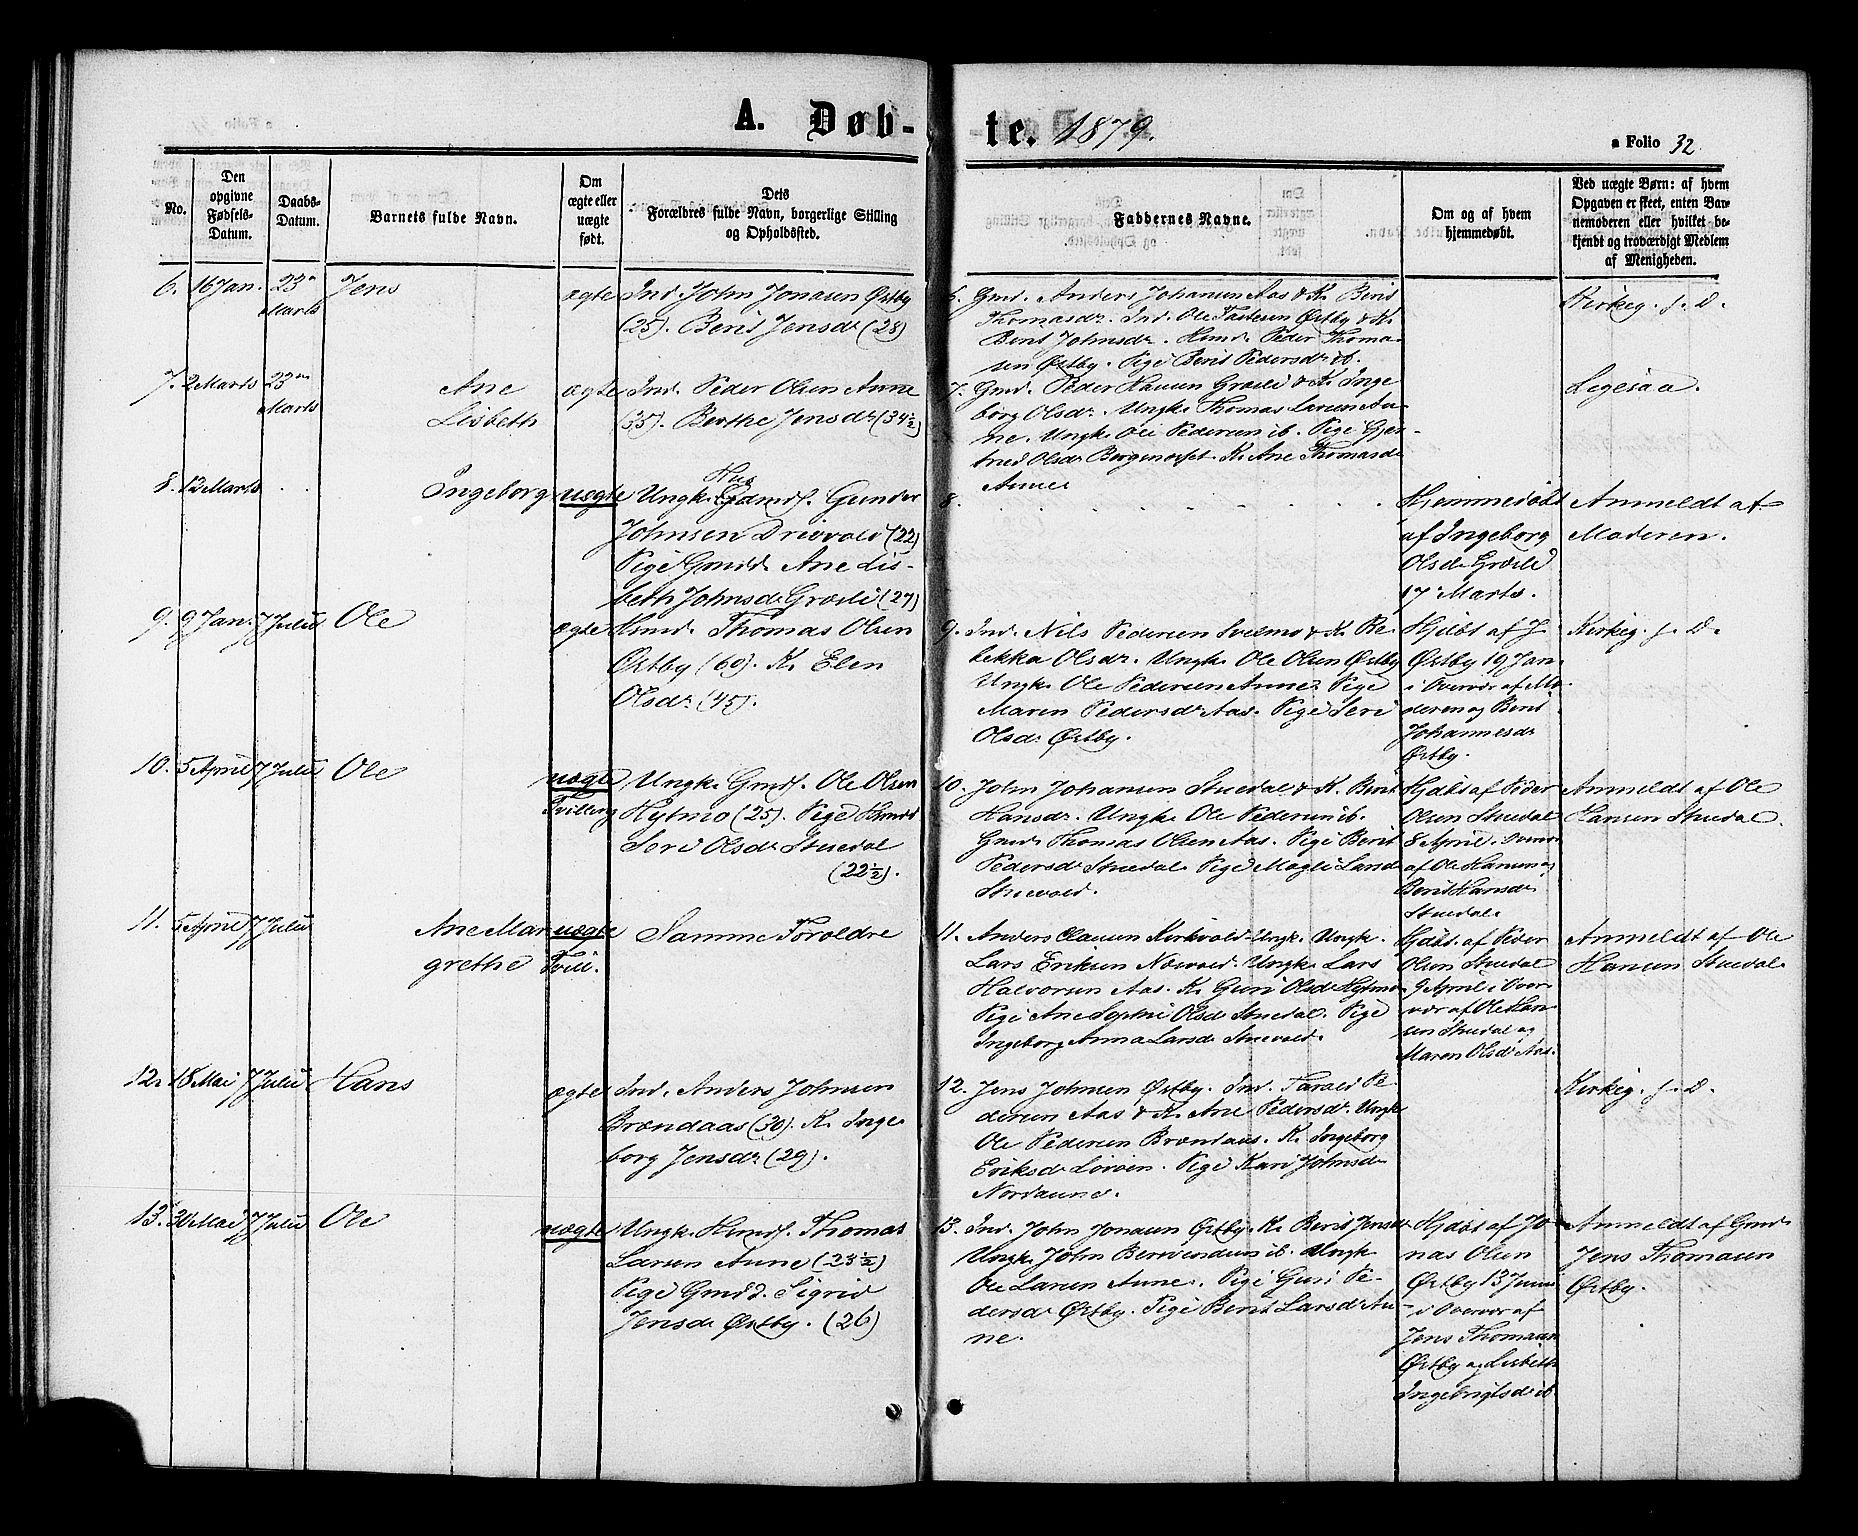 A. Døb-
te. 1879.
a Folio 32
No.
Den opgivne Fødsels-Datum.
Daabs-Datum.
Barnets fulde Navn.
Om ægte eller uægte født.
Dets Forældres fulde Navn, borgerlige Stilling og Opholdssted.
Faddernes Navne.
Om og af hvem hjemmedøbt.
Ved uægte Børn: af hvem
Opgaven er skeet, enten Bar-
nemoderen eller hvilket be-
kjendt og troværdigt Medlem
af Menigheden.
6. 16 Jan. 23de Marts Jens ægte Ind. John Jonasen Østby
(25). Berit Jensdr (28)
6. Gmd. Anders Johansen Aas & K. Berit
Thomasdr. Ind. Ole Østby & K.
Berit Johnsdr. Hmd. Peder Thoma-
sen Østby. Pige Berit Pedersdr ib.
Kirkeg. f. D.
7. 2 Marts 23de Marts Ane
Lisbeth
ægte Ind. Peder Olsen Aune
(35). Berthe Jensdr (34½)
7. Gmd. Peder Hansen Græsli & K. Inge
borg Olsdr. Ungk. Thomas Larsen Au-
ne. Ungk. Ole Pedersen ib. Pige Gjer-
trud Olsdr. K. Ane Thomasdr
Aune
Ligesaa.
8. 12 Marts . . Ingeborg uægte Ungk. Gmds. Gunder
Johnsen Drivvold (22)
Pige Gmdd. Ane Lis-
beth Johnsdr Græsli (27)
8. . . . . . .
Hjemmedøbt
af Ingeborg
Olsdr Græsli
17 Marts.
Anmeldt af
Moderen.
9. 9 Jan. 7 Julii Ole
ægte Hmd. Thomas Olsen
Østby (60). K. Elen
Olsdr (45).
9. Ind. Nils Pedersen Svelmo & K. Re-
bekka Olsdr. Ungk. Ole Olsen Østby
Ungk. Ole Pedersen Aune. Pige
Maren Pedersdr Aas. Pige Seri
Olsdr Østby.
Hjdbt af J.
Østby 19 Jan
i Overvær af Mo
deren og Berit
Johannesdr
Østby.
Kirkeg. f. D.
10. 5 April 7 Julii Ole
uægte
Tvilling
Ungk. Gmds. Ole Olsen
Hytmo (25). Pige
Seri Olsdr Stuedal
(22½).
10. John Johansen Stuedal & K. Berit
Hansdr. Ungk. Ole Pedersen ib.
Gmd. Thomas Olsen Aas. Pige Berit
Pedersdr Stuedal. Pige Magli Larsdr
Stuevold.
Hjdbt af Peder
Olsen Stuedal
8 April. Overvær
af Ole Hansen og
Berit Hansdr
Stuedal.
Anmeldt af Ole
Hansen Stuedal.
11. 5 April 7 Julii Ane Mar
grethe
uægte
Tvill.
Samme Forældre
11. Anders Clausen Kirkvold Ungk. Ungk.
Lars Eriksen Næsvold. Ungk. Lars
Halvorsen Aas. K. Guri Olsdr Hytmo
Pige Ane Sophie Olsdr Stuedal. Pige
Ingeborg Anna Larsdr Stuevold.
Hjdbt. af Peder
Olsen Stuedal
9 April i Over-
vær af Ole Han-
sen Stuedal og
Maren Olsdr Aas.
Anmeldt af Ole
Hansen Stuedal.
12. 18 Mai 7 Julii Hans
ægte Ind. Anders Johnsen
Brændaas (30). K. Inge
borg Jensdr (29).
12. Jens Johnsen Østby. Ind. Tarald Pe-
dersen Aas & K. Ane Pedersdr. Ungk
Ole Pedersen Brændaas. K. Ingeborg
Eriksdr Løvøen. Pige Kari Johnsdr
Nordaune.
Kirkeg. f. D.
13. 30 Mai 7 Julii Ole
uægte Ungk. Hmds. Thomas
Larsen Aune (23½)
Pige Gmdd. Sigrid
Jensdr Østby. (26)
13. Ind. John Jonasen Østby. K. Berit Jensdr
Ungk. John Berntsen ib. Ungk
Ole Larsen Aune. Pige Guri Pe-
dersdr Østby. Pige Berit Larsdr Au-
ne.
Hjdbt af Jo
nas Olsen
Østby 13 Juni
i Overvær af
Jens Thomasen
Østby og Lisbeth
Ingebrigtsdr ib
Anmeldt af Gmd.
Jens Thomasen
Østby.